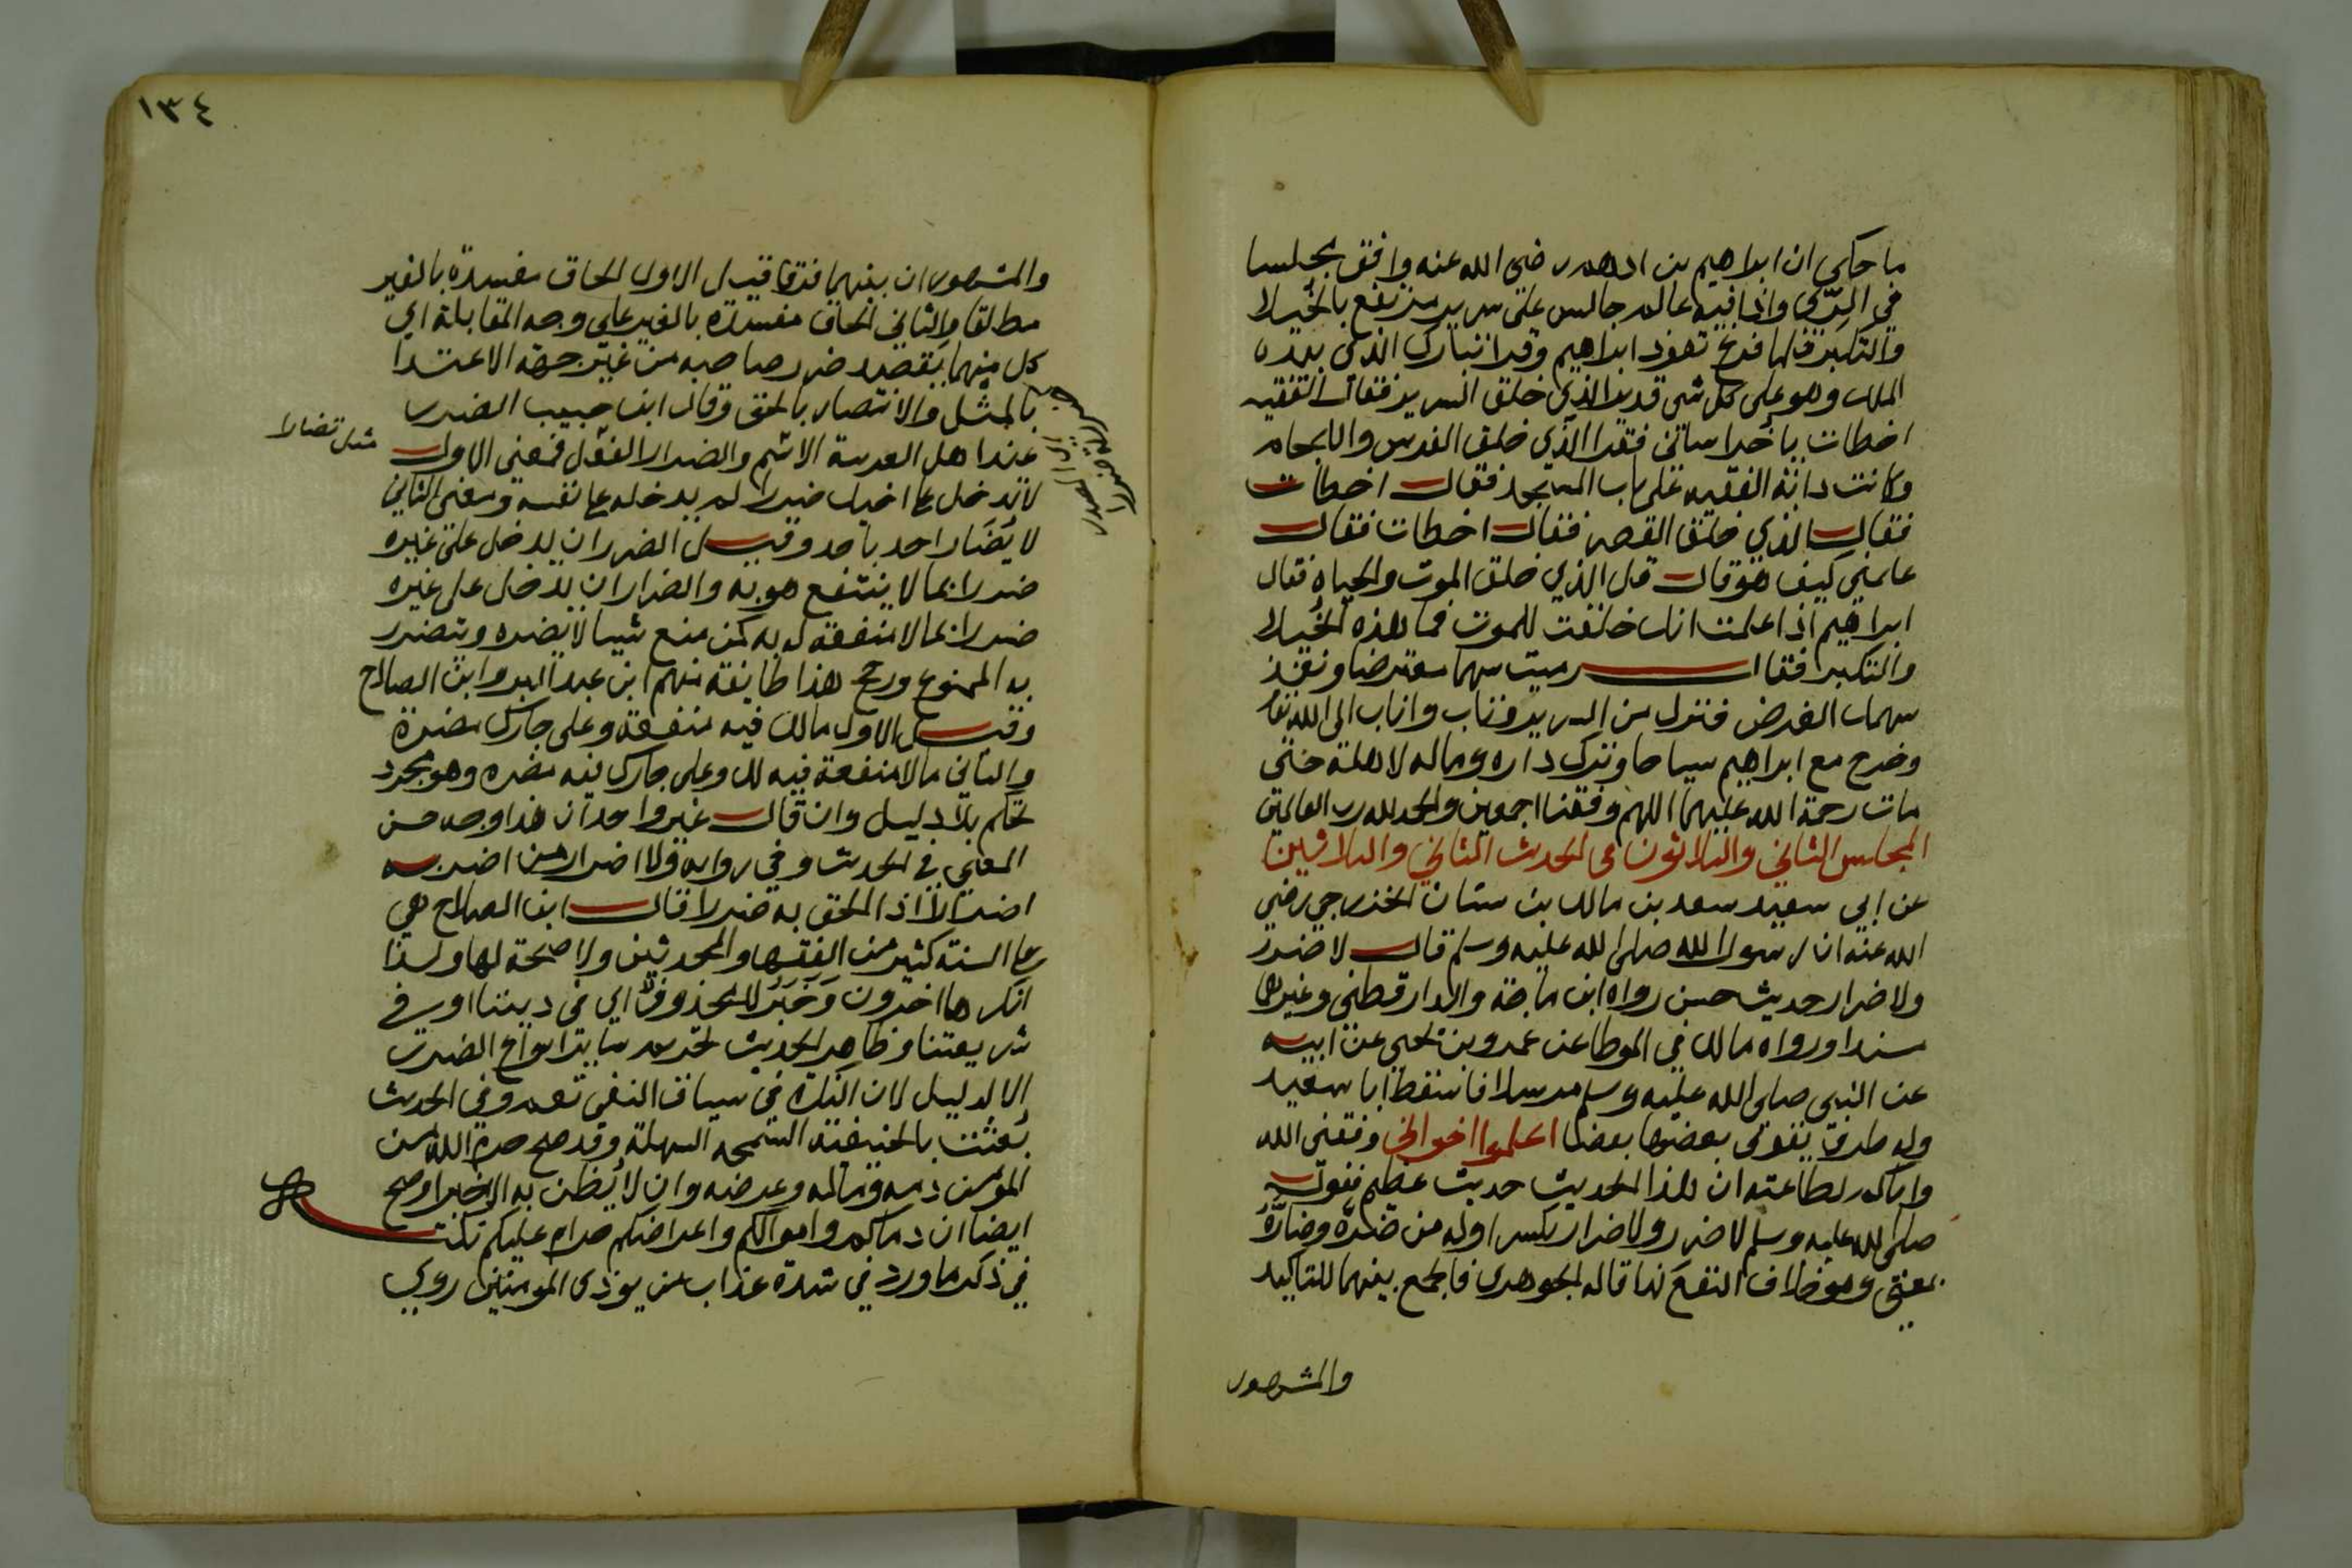 ما حكي ان ابراهيم بن ادهم رضي الله عنه وافق مجلسا
في الري واذا فيه عالم جالس على سرير مرتفع بالخيلا
والتكبر فلما فرغ تعوذ ابراهيم وقرا تبارك الذي بيده
الملك وهو على كل شي قدير الذي خلق السرير فقال الفقيه
اخطات يا خراساني فقرا الذي خلق الفرس والالجام
وكانت دابة الفقيه على باب المسجد فقال اخطات
فقال الذي خلق القصر فقال اخطات فقال
علمني كيف هو قال قل الذي خلق الموت والحياه فقال
ابراهيم اذا علمت انك خلقت للموت فما هذه الخيلا
والتكبر فقال رميت سهما معترضا ونفذ
سهمك الغرض فنزل من السرير وتاب واناب الى الله تعا
وخرج مع ابراهيم سياحا وترك داره وماله لاهله حتى
مات رحمة الله عليهما اللهم وفقنا اجمعين والحمد لله رب العالمين
المجلس الثاني والثلاثون في الحديث الثاني والثلاثين
عن ابي سعيد سعد بن مالك بن سنان الخزرجي رضي
الله عنه ان رسول الله صلى الله عليه وسلم قال لا ضرر
ولا ضرار حديث حسن رواه ابن ماجة والدارقطني وغيرها
مسندا ورواه مالك في الموطا عن عمرو بن يحيى عن ابيه
عن النبي صلى الله عليه وسلم مرسلا فاسقط ابا سعيد
وله طرق يقوى بعضها بعضا اعلموا اخواني وفقني الله
واياكم لطاعته ان هذا الحديث حديث عظيم فقوله
صلى الله عليه وسلم لا ضرر ولا ضرار بكسر اوله من ضره وضاره
بمعنى وهو خلاف النفع كذا قاله الجوهري فالجمع بينهما للتاكيد
والمشهور
١٣٤
والمشهور ان بينهما فرقا قيل الاول الحاق مفسدة بالغير
مطلقا والثاني الحاق مفسدة بالغير على وجه المقابلة اي
كل منهما يقصد ضرر صاحبه من غير جهة الاعتدا
بالمثل والانتصار بالحق وقال ابن حبيب الضرر
عند اهل العربية الاسم والضرار الفعل فمعنى الاول
مثل تضارا
لا تدخل على اخيك ضررا لم يدخله على نفسه ومعنى الثاني
لا يضار احد باحد وقيل الضرر ان يدخل على غيره
ضررا بما لا ينتفع هو به والضرار ان يدخل على غيره
ضررا بما لا منفعة له به كمن منع شيا لا يضره ويتضرر
به الممنوع ورجح هذا طايفة منهم ابن عبد البر وابن الصلاح
وقيل الاول مالك فيه منفعة وعلى جارك مضرة
والثاني ما لا منفعة فيه لك وعلى جارك فيه مضره وهو مجرد
تحكم بلا دليل وان قال غير واحد ان هذا وجه حسن
المعنى في الحديث وفي روايه ولا اضرار من اضر به
اضرارا اذا الحق به ضررا قال ابن الصلاح هي
على السنة كثير من الفقها والمحدثين ولا صحة لها ولذا
انكرها اخرون وخبر لا محذوف اي في ديننا اوسفي
شريعتنا وظاهر الحديث تحريم ساير انواع الضرر
الا لدليل لان النكرة في سياق النفي تعم وفي الحديث
بعثت بالحنيفية السمحه السهلة وقد صح حرم الله من
المؤمن دمه وماله وعرضه وان لا يظن به الا خيرا وصح
ايضا ان دماكم واموالكم واعراضكم حرام عليكم نكت
في ذكر ما ورد في شدة عذاب من يوذي المومنين روي